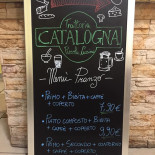 Trattoria
CATALOGNA
Menù Pranzo
• PRIMO + BIBITA + CAFFÈ
+ COPERTO
7,90 €
• PIATTO COMPOSTO + BIBITA
+ CAFFÈ + COPERTO
9,90 €
• PRIMO + SECONDO + CONTORNO
+ CAFFÈ + COPERTO